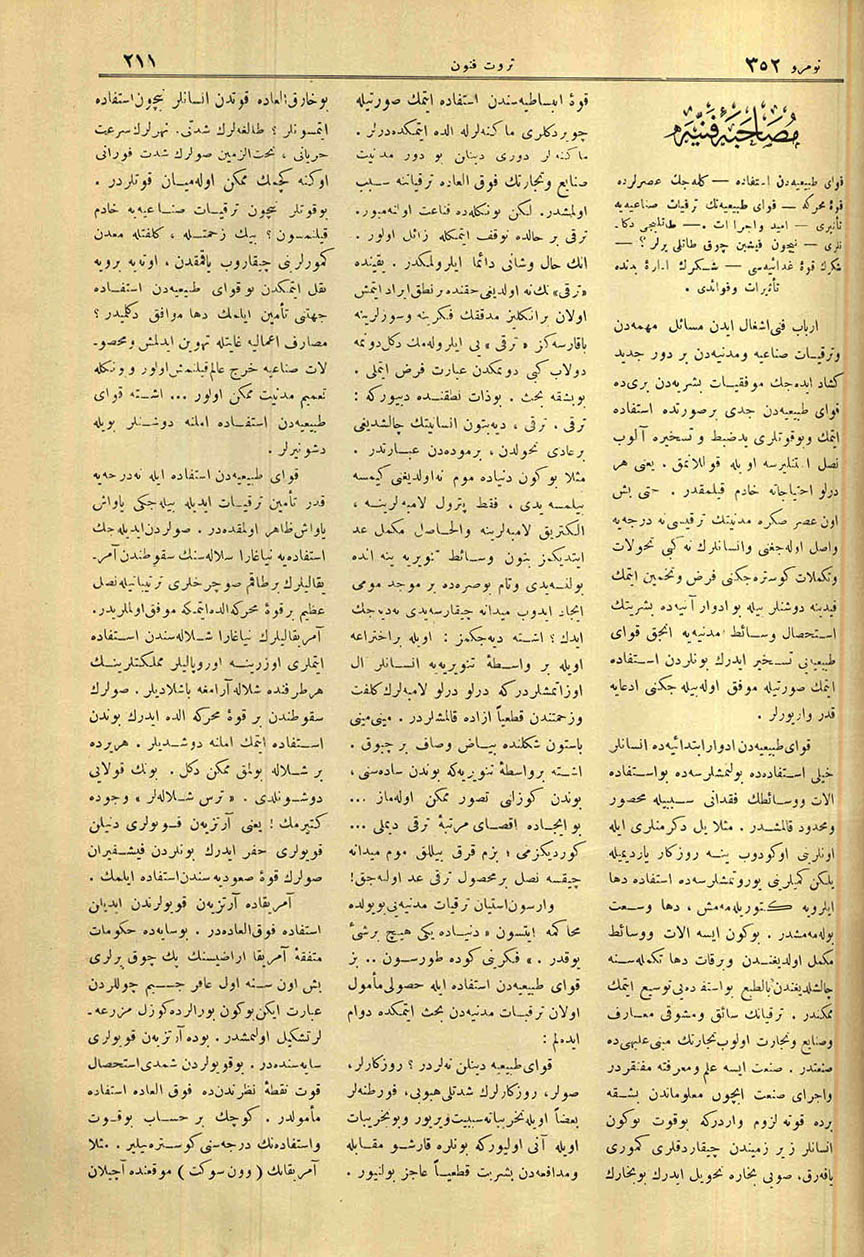 نومرو ٣٥٢
ثروت فنون
٢١١
مصاحبهٔ فنیه
قوای طبیعیه‌دن استفاده — كله‌جك عصرلرده
قوهٔ محركه — قوای طبیعیه‌نك ترقیات صناعیه‌یه
تأثیری — امید واجراآت . —
نلری — نیچون فیشین چوق طاتلی یرلر ؟ —
شكرك قوهٔ غدائیه‌سی — شكرك ادارهٔ بدنده
تأثیرات وفوائدی .
ارباب فنی اشغال ایدن مسائل مهمه‌دن
وترقیات صناعیه ومدنیه‌دن بر دور جدید
كشاد ایده‌جك موفقیات بشریه‌دن بری‌ده
قوای طبیعیه‌دن جدی برصورتده استفاده
ایتمك وبوقوتلری یدضبط وتسخیره آلوب
نصل ایستنلیرسه اویله قوللانمق . یعنی هر
درلو احتیاجاته خادم قیلمقدر . حتی بش
اون عصر صكره مدنیتك ترقیسی نه درجه‌یه
واصل اوله‌جغنی وانسانلرك نه كبی تحولات
وتكملات كوستره‌جكنی فرض وتخمین ایتمك
قیدینه دوشنلر بیله بو ادوار آتیه‌ده بشریتك
استحصال وسائط مدنیه‌یه انجق قوای
طبیعیه‌یی تسخیر ایدرك بونلردن استفاده
ایتمك صورتیله موفق اوله‌بیله‌جكنی ادعایه
قدر واریورلر .
قوای طبیعیه‌دن ادوار ابتدائیه‌ده انسانلر
خیلی استفاده‌ده بولنمشلرسه‌ده بواستفاده
آلات ووسائطك فقدانی سببیله محصور
ومحدود قالمشدر . مثلا یل دكرمنلری ایله
اونلرینی اوكودوب ینه روزكار یاردیمیله
یلكن كمیلرینی یوروتمشلرسه‌ده استفاده دها
ایلرویه كتوریله‌مه‌مش ، دها وسعت
بوله‌مه‌مشدر . بوكون ایسه آلات ووسائط
مكمل اولدیغندن وبرقات دها تكمله‌سنه
چالشلدیغندن بالطبع بواستفاده‌یی توسیع ایتمك
ممكندر . ترقیاتك سائق ومشوقی معارف
وصنایع وتجارت اولوب تجارتك مبنی علیهی‌ده
صنعتدر . صنعت ایسه علم ومعرفته مفتقردر
واجرای صنعت ایچون معلوماتدن بشقه
برده قوته لزوم واردركه بوقوت بوكون
انسانلر زیر زمیندن چیقاردقلری كموری
یاقه‌رق، صویی بخاره تحویل ایدرك بوبخارك
قوهٔ انبساطیه‌سندن استفاده ایتمك صورتیله
چویردكلری ماكنه‌لرله الده ایتمكده‌درلر .
ماكنه‌لر دوری دینلن بو دور مدنیت
صنایع وتجارتك فوق العاده ترقیاتنه سبب
اولمشدر. لكن بونكله‌ده قناعت اولنه‌میور.
ترقی بر حالده توقف ایتمكله زائل اولور .
انك حال وشانی دائما ایلرولمكدر. یقینده
«ترقی»نك نه اولدیغی حقنده بر نطق ایراد ایتمش
اولان برانكلیز مدققك فكرینه وسوزلرینه
باقارسه‌كز «ترقی» یی ایلروله‌مك دكل دونمه
دولاب كبی دونمكدن عبارت فرض ایتملی .
بوبشقه بحث . بوذات نطقنده دییوركه :
ترقی . ترقی ، دیه‌بتون انسانیتك چالشدیغی
برعادی تحولدن ، برموده‌دن عبارتدر .
مثلا بوكون دنیاده موم نه‌اولدیغنی كیمسه
بیلمسه‌یدی ، فقط پترول لامبه‌لرینه ،
الكتریق لامبه‌لرینه والحاصل مكمل عد
ایتدیكمز بتون وسائط تنویریه‌ینه آنده
بولنه‌یدی وتام بوصره‌ده بر موجد مومی
ایجاد ایدوب میدانه چیقارسه‌یدی نه‌دیه‌جك
ایدك ؟ اشته دیه‌جكمز : اویله براختراعه
اویله بر واسطهٔ تنویریه‌یه انسانلر ال
اوزاتمشلردركه درلو درلو لامبه‌لرك كلفت
وزحمتندن قطعیاً ازاده قالمشلردر . مینی‌مینی
باستون شكلنده بیاض وصاف بر چبوق .
اشته برواسطهٔ تنویریه‌كه بوندن ساده‌سنی ،
بوندن كوزلنی تصور ممكن اوله‌ماز ...
بو ایجاده اقصای مرتبهٔ ترقی دیملی ...
كوردیكزمی ؛ بزم قرق ییللق موم میدانه
چیقسه نصل برمحصول ترقی عد اوله‌جق!
وارسون‌استیان ترقیات مدنیه‌یی بویولده
محاكمه ایتسون « دنیاده یكی هیچ برشئ
یوقدر . » فكرینی كوده طورسون .. بز
قوای طبیعیه‌دن استفاده ایله حصولی مأمول
اولان ترقیات مدنیه‌دن بحث ایتمكده دوام
ایده‌لم :
قوای طبیعیه دینلن نه‌لردر ؟ روزكارلر،
صولر، روزكارلرك شدتلی هبوبی، فورطنه‌لر
بعضاً اویله تخریباته‌سبیت ویریور وبوتخریبات
اویله آنی اولیوركه بونلره قارشو مقابله
ومدافعه‌دن بشریت قطعیاً عاجز بولنیور .
بوخارق‌العاده قوتدن انسانلر نیچون‌استفاده
ایتمسونلر ؟ طالغه‌لرك شدتی. نهرلرك سرعت
جریانی ، تحت‌الزمین صولرك شدت فورانی
اوكنه كچمك ممكن اوله‌میان قوتلردر .
بوقوتلر نیچون ترقیات صناعیه‌یه خادم
قیلنمسون ؟ بیك زحمتله ، كلفتله معدن
كمورلرینی چیقاروب یاقمقدن ، اوته‌یه برویه
نقل ایتمكدن بوقوای طبیعیه‌دن استفاده
جهتنی تأمین ایلمك دها موافق دكلمیدر ؟
مصارف اعمالیه غایتله تهوین ایدلمش ومحصو-
لات صناعیه خرج عالم قیلنمش اولور وونكله
تعمیم مدنیت ممكن اولور ... اشته قوای
طبیعیه‌دن استفاده املنه دوشنلر بویله
دشونیرلر .
قوای طبیعیه‌دن استفاده ایله نه‌درجه‌یه
قدر تأمین ترقیات ایدیله بیله‌جكی یاواش
یاواش ظاهر اولمقده‌در . صولردن ایدیله‌جك
استفاده‌یه نیاغارا شلاله‌سنك سقوطندن آمر-
یقالیلرك برطاقم صوچرخلری ترتیباتیله نصل
عظیم برقوهٔ محركه الده ایتمكه موفق‌اولملریدر.
آمریقالیلرك نیاغارا شلاله‌سندن استفاده
ایتملری اوزرینه اوروپالیلر مملكتلرینك
هرطرفنده شلاله آرامغه باشلادیلر. صولرك
سقوطندن بر قوهٔ محركه الده ایدرك بوندن
استفاده ایتمك املنه دوشدیلر . هریرده
بر شلاله بولمق ممكن دكل . بونك قولایی
دوشونلدی . « ترس شلاله‌لر » وجوده
كتیرمك ! یعنی آرتزیه‌ن قویولری دنیلن
قویولری حفر ایدرك بونلردن فیشقیران
صولرك قوهٔ صعودیه‌سندن استفاده ایلمك .
آمریقاده آرتزیه‌ن قویولرندن ایدیلن
استفاده فوق‌العاده‌در . بوسایه‌ده حكومات
متفقهٔ آمریقا اراضیسنك پك چوق یرلری
بش اون سنه اول عاقر جسیم چوللردن
عبارت ایكن بوكون بورالرده كوزل مزرعه-
لر تشكیل اولنمشدر . بوده آرتزیه‌ن قویولری
سایه‌سنده‌در . بوقویولردن شمدی استحصال
قوت نقطهٔ نظرندن‌ده فوق العاده استفاده
مأمولدر . كوچك بر حساب بوقوت
واستفاده‌نك درجه‌سنی كوستره‌بیلیر . مثلا
آمریقانك ( وون سوكت ) موقعنده آچیلان